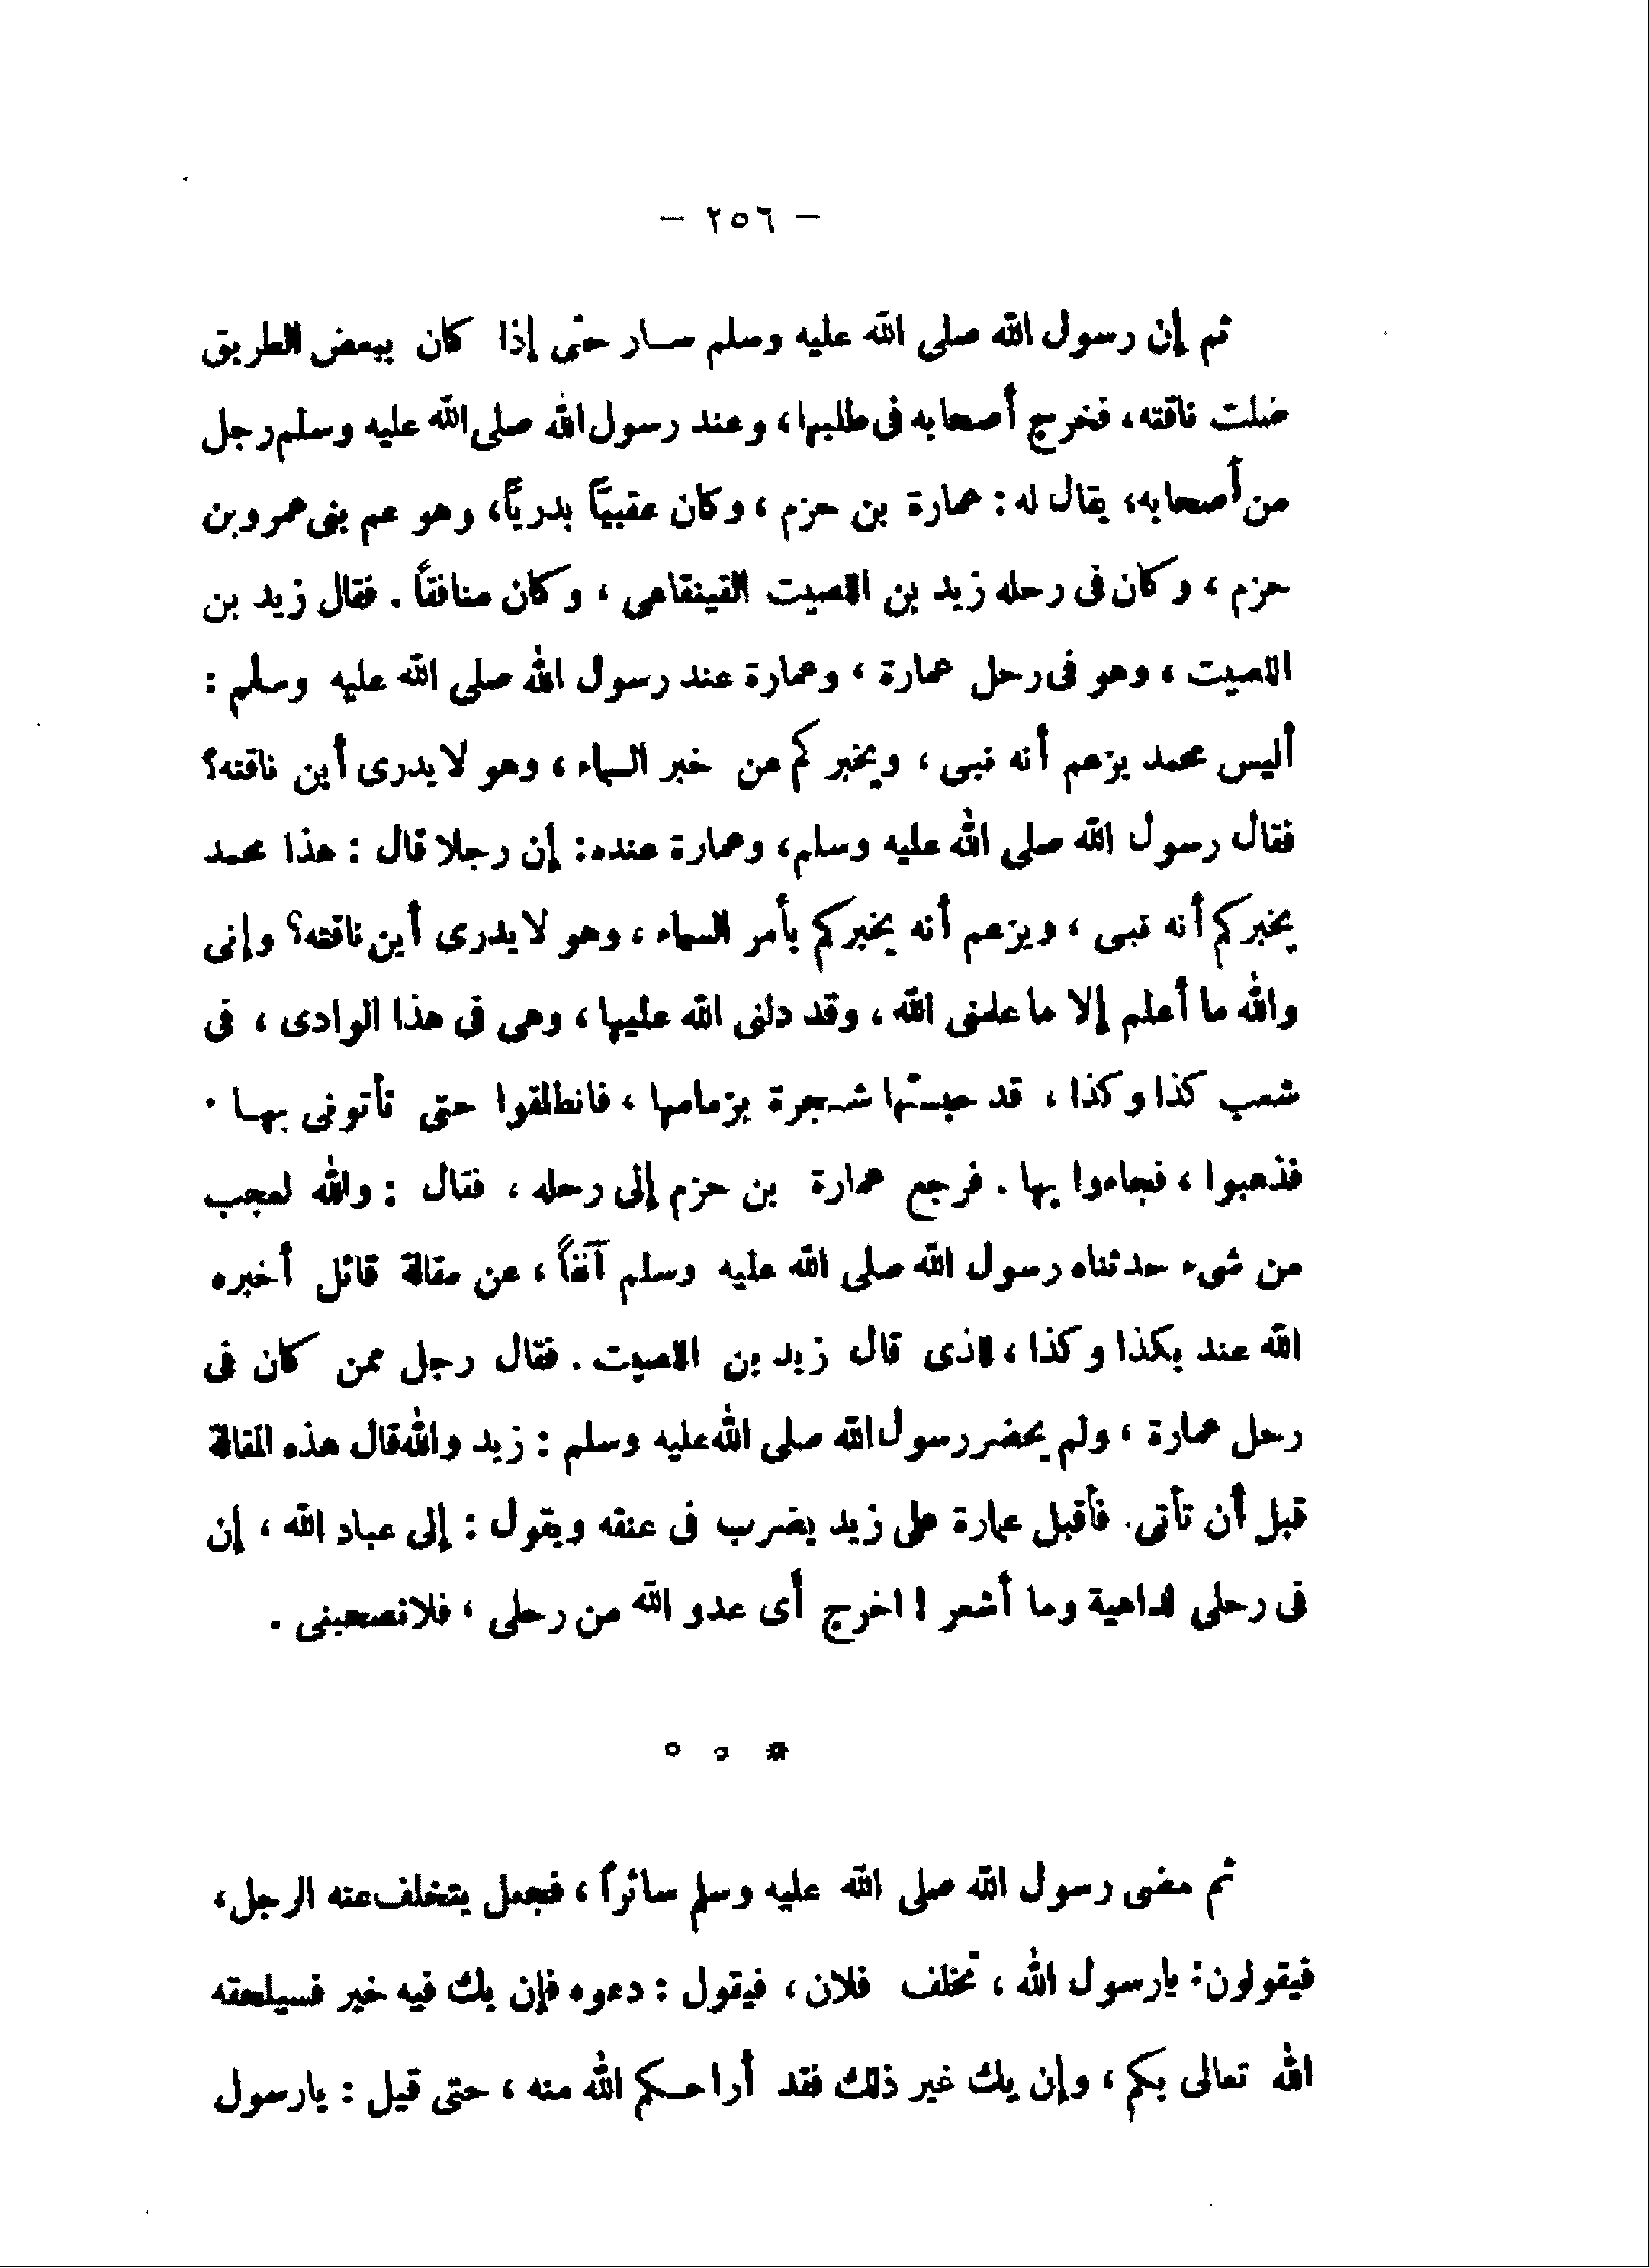 - ٢٥٦ -
ثم إن رسول الله صلى الله عليه وسلم سار حتى إذا كان ببعض الطريق
ضلت ناقته، فخرج أصحابه فى طلبها، وعند رسول الله صلى الله عليه وسلم رجل
من أصحابه، يقال له : عمارة بن حزم ، وكان عقبيًّا بدريًّا، وهو عم بنى عمرو بن
حزم ، وكان فى رحله زيد بن اللصيت القينقاعى ، وكان منافقاً . فقال زيد بن
اللصيت ، وهو فى رحل عمارة ، وعمارة عند رسول الله صلى الله عليه وسلم :
أليس محمد يزعم أنه نبى ، ويخبركم عن خبر السماء ، وهو لا يدرى أين ناقته؟
فقال رسول الله صلى الله عليه وسلم، وعمارة عنده: إن رجلا قال : هذا محمد
يخبركم أنه نبى ، ويزعم أنه يخبركم بأمر السماء ، وهو لا يدرى أين ناقته؟ وإنى
والله ما أعلم إلا ما علمنى الله ، وقد دلنى الله عليها ، وهى فى هذا الوادى ، فى
شعب كذا وكذا ، قد حبستها شجرة بزمامها ، فانطلقوا حتى تأتونى بها .
فذهبوا ، فجاءوا بها . فرجع عمارة بن حزم إلى رحله ، فقال : والله لعجب
من شىء حدثناه رسول الله صلى الله عليه وسلم آنفاً ، عن مقالة قائل أخبره
الله عند بكذا وكذا ، للذى قال زيد بن اللصيت . فقال رجل ممن كان فى
رحل عمارة ، ولم يحضر رسول الله صلى الله عليه وسلم : زيد والله قال هذه المقالة
قبل أن تأتى. فأقبل عمارة على زيد يضرب فى عنقه ويقول : إلى عباد الله ، إن
فى رحلى لداهية وما أشعر ! اخرج أى عدو الله من رحلى ، فلا تصحبنى .
* * *
ثم مضى رسول الله صلى الله عليه وسلم سائراً ، فجعل يتخلف عنه الرجل،
فيقولون: يا رسول الله ، تخلف فلان ، فيقول : دعوه فإن يك فيه خير فسيلحقه
الله تعالى بكم ، وإن يك غير ذلك فقد أراحكم الله منه ، حتى قيل : يا رسول